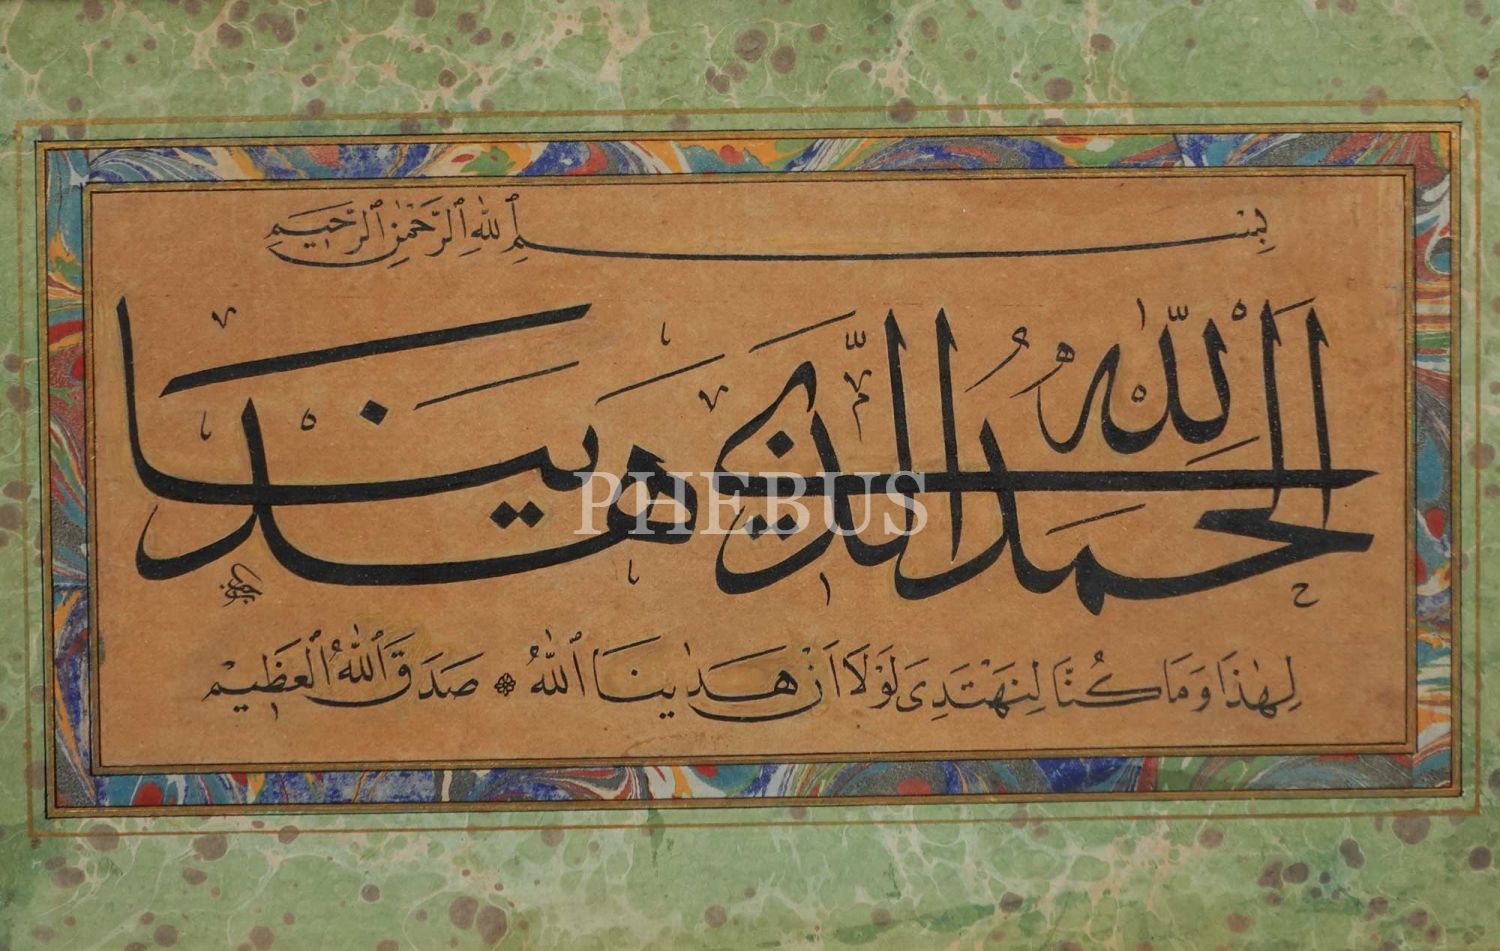 بِسْمِ ٱللهِ ٱلرَّحْمٰنِ ٱلرَّحِيمِ
اَلْحَمْدُ لِلّٰهِ الَّذِى هَدٰينَا
لِهٰذَا وَمَا كُنَّا لِنَهْتَدِىَ لَوْلَا اَنْ هَدٰينَا ٱللهُ صَدَقَ ٱللهُ ٱلْعَظِيمْ
PHEBUS